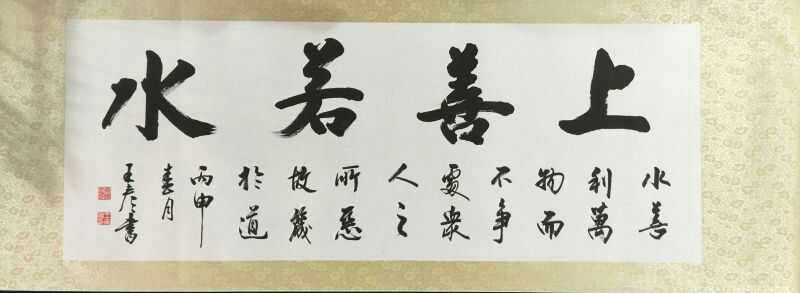 上善若水
水善
利萬
物而
不争
處衆
人之
所惡
故幾
於道
丙申
春月
王彦書